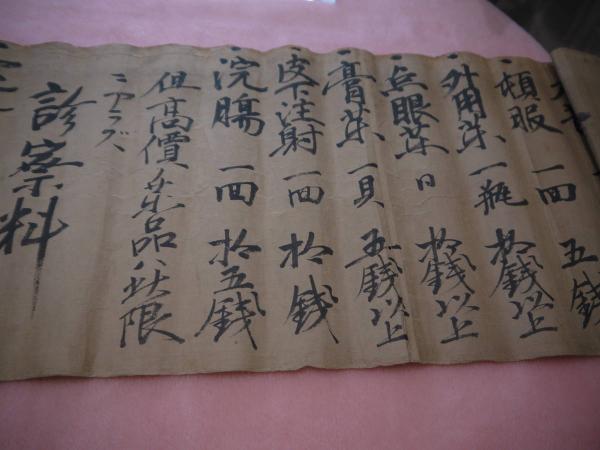 頓服 一回 五銭
外用薬 一瓶 拾銭以上
点眼薬 日 拾銭以上
膏薬 一貝 五銭以上
皮下注射 一回 拾銭
浣腸 一回 拾五銭
但高價薬品ハ此限
ニアラズ、
診察料